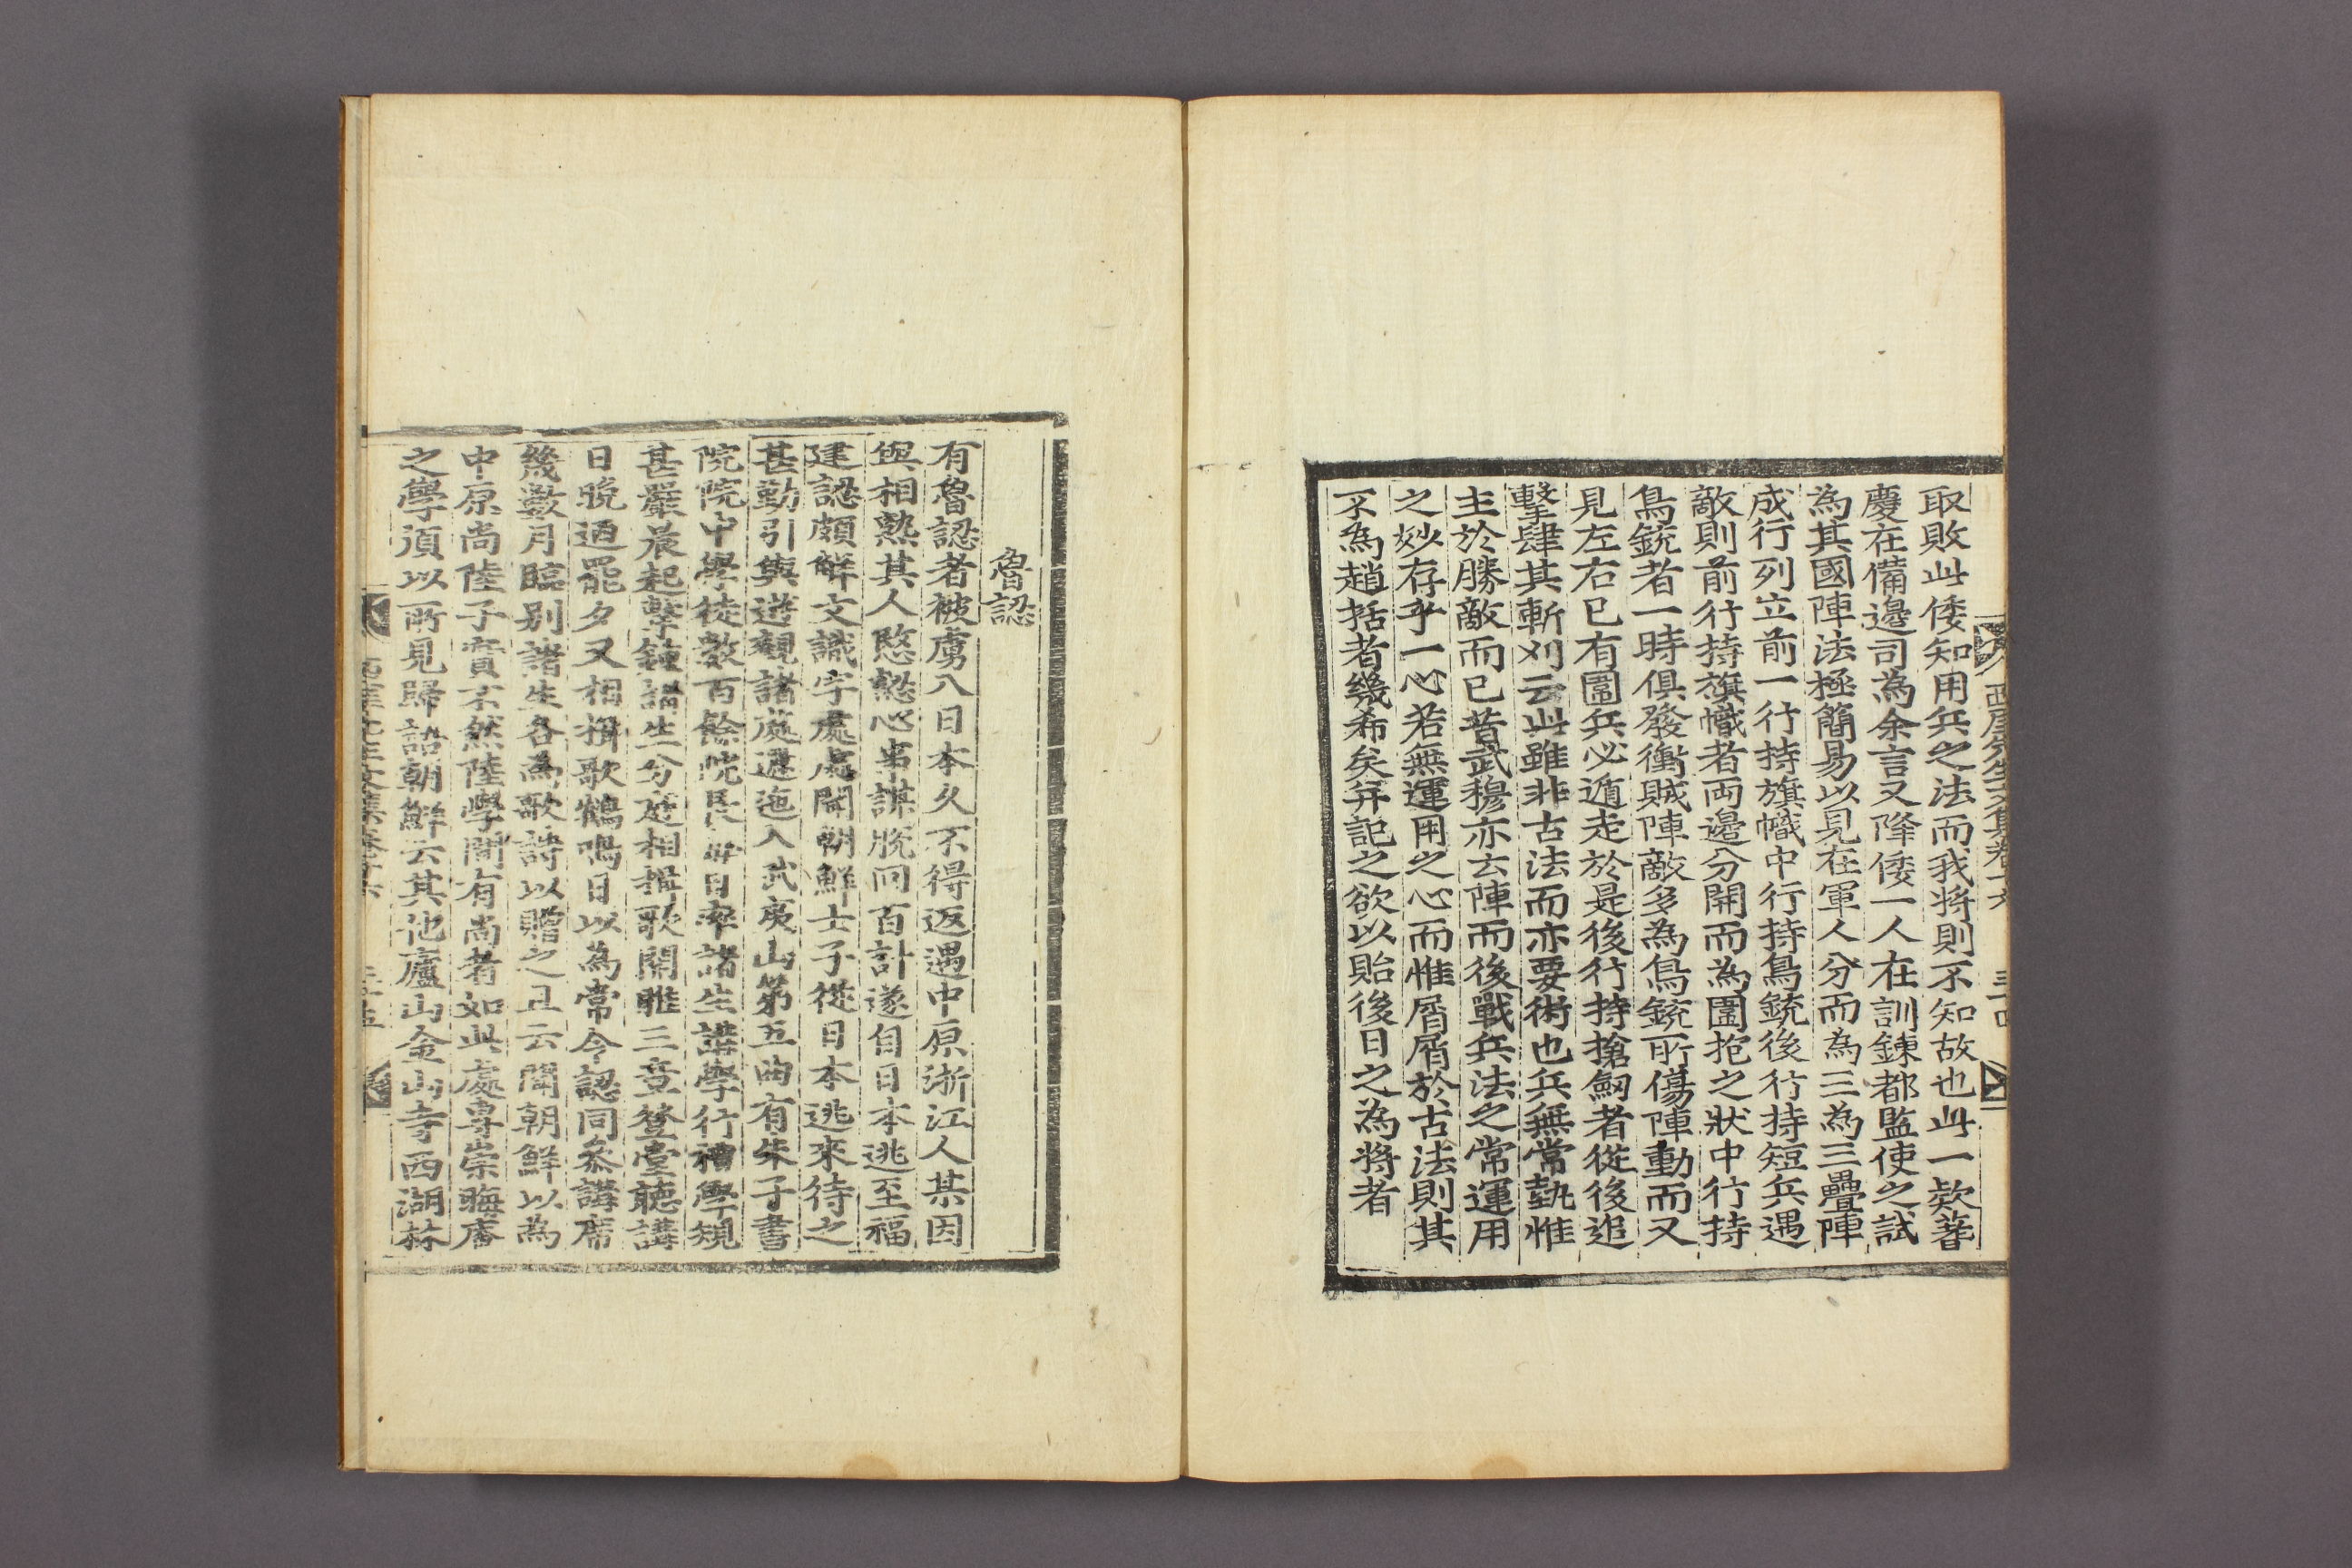 取敗此倭知用兵之法而我將則不知故也此一款舊
慶在備邊司為余言又降倭一人在訓鍊都監使之試
為其國陣法極簡易以見在軍人分而為三為三疊陣
成行列立前一行持旗幟中行持鳥銃後行持短兵遇
敵則前行持旗幟者兩邊分開而為圍抱之狀中行持
鳥銃者一時俱發衝賊陣敵多為鳥銃所傷陣動而又
見左右已有圍兵必遁走於是後行持搶劒者從後追
擊肆其斬刈云此雖非古法而亦要術也兵無常埶惟
主於勝敵而已昔武穆亦云陣而後戰兵法之常運用
之妙存乎一心若無運用之心而惟屑屑於古法則其
不為趙括者幾希矣并記之欲以貽後日之為將者
西厓先生文集卷十六
魯認
有魯認者被虜入日本久不得返遇中原浙江人某因
與相熟其人愍懇心事謀脫回百計遂自日本逃至福
建認頗解文識字處處聞朝鮮士子從日本逃來待之
甚勤引與遊觀諸處邐迤入武夷山第五曲有朱子書
院院中學徒數百餘院長每日率諸生講學行禮學規
甚嚴晨起擊鐘諸生分庭相揖歌關雎三章登堂聽講
日晩迺罷夕又相揖歌鶴鳴日以為常令認同叅講席
幾數月臨別諸生各為歌詩以贈之且云聞朝鮮以為
中原尚陸子實不然陸學間有尚者如此處專崇晦庵
之學須以所見歸語朝鮮云其他廬山金山寺西湖林
西厓先生文集卷十六 三十五